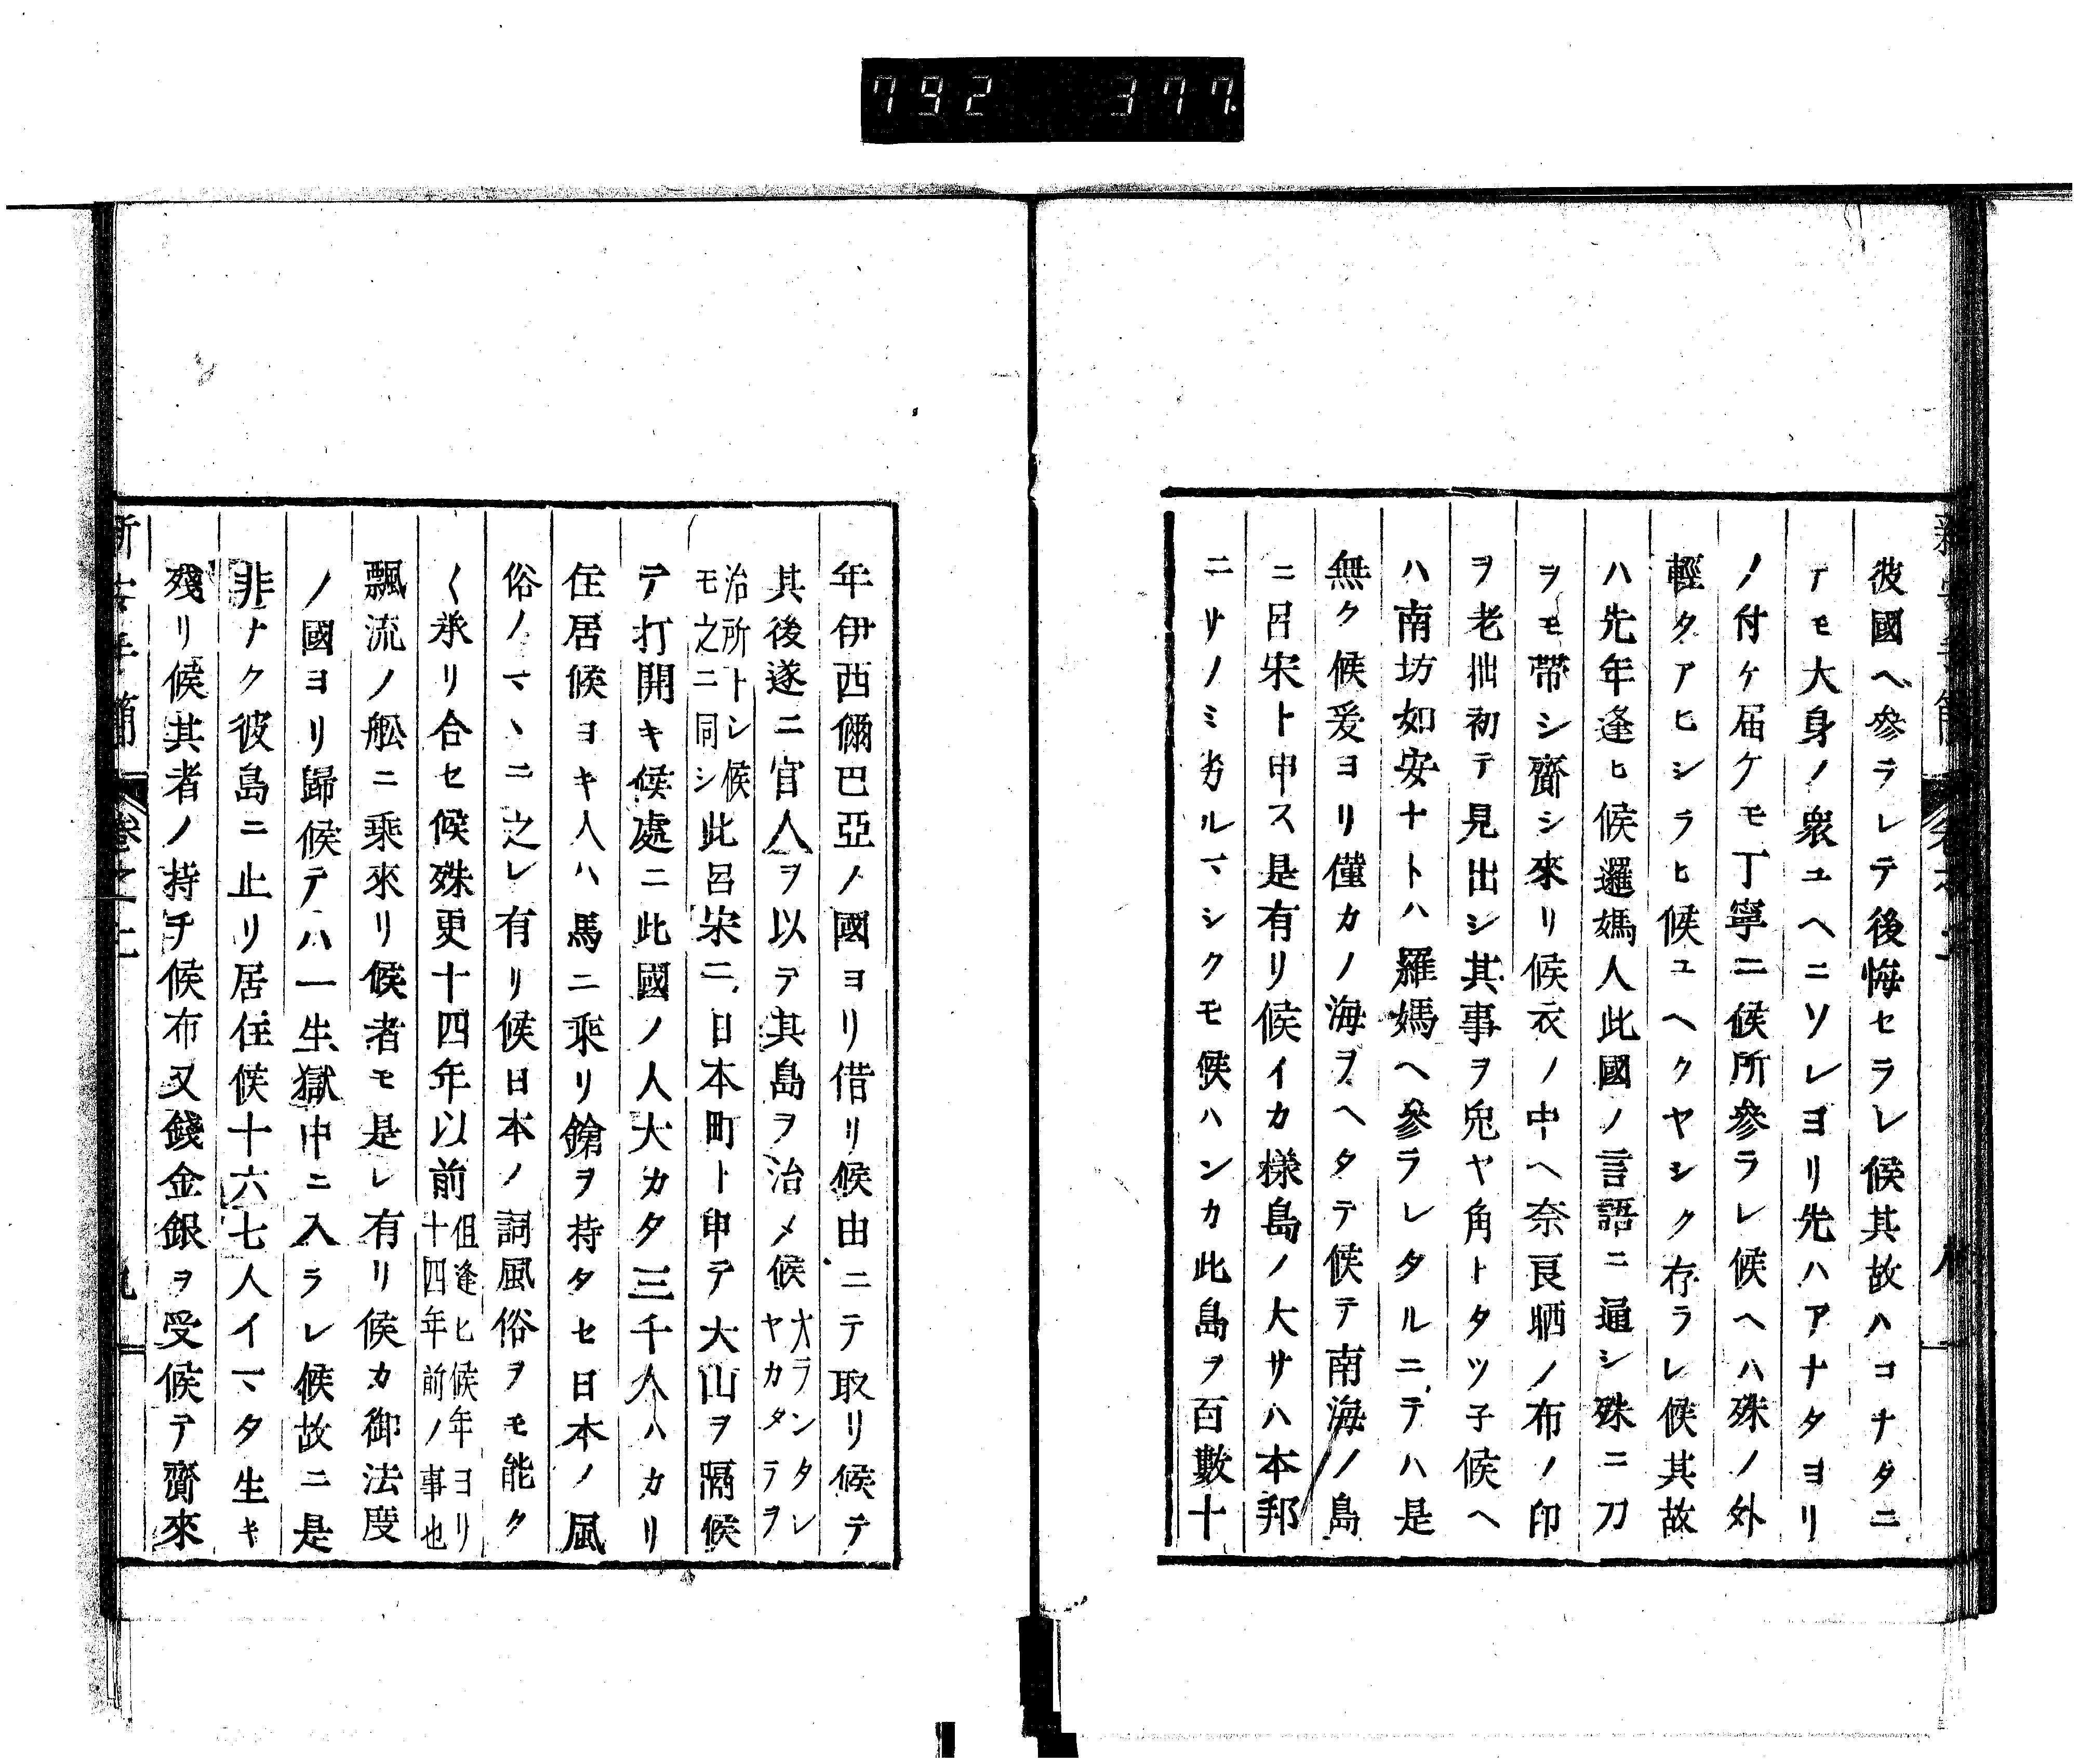 792 377
彼國ヘ參ラレテ後悔セラレ候其故ハコナタニ
テモ大身ノ衆ユヘニソレヨリ先ハアナタヨリ
ノ付ケ届ケモ丁寧ニ候所參ラレ候ヘハ殊ノ外
輕タアヒシラヒ候ユヘクヤシク存ラレ候其故
ハ先年逢ヒ候邏媽人此國ノ言語ニ通シ殊ニ刀
ヲモ帶シ齎シ來リ候衣ノ中ヘ奈良晒ノ布ノ印
ヲ老拙初テ見出シ其事ヲ兎ヤ角トタツ子候ヘ
ハ南坊如安ナトハ羅媽ヘ參ラレタルニテハ是
無ク候爰ヨリ僅カノ海ヲヘタテ候テ南海ノ島
ニ呂宋ト申ス是有リ候イカ樣島ノ大サハ本邦
ニサノミ劣ルマシクモ候ハンカ此島ヲ百數十
年伊西儞巴亞ノ國ヨリ借リ候由ニテ取リ候テ
其後遂ニ官人ヲ以テ其島ヲ治メ候大ランタレヤカタラヲ
治所トシ候モ之ニ同シ此呂宋ニ日本町ト申テ大山ヲ隔候
テ打開キ候處ニ此國ノ人大カタ三千人ハカリ
住居候ヨキ人ハ馬ニ乘リ鎗ヲ持タセ日本ノ風
俗ノマヽニ之レ有リ候日本ノ詞風俗ヲモ能ク
く承リ合セ候殊更十四年以前但逢ヒ候年ヨリ十四年前ノ事也
飄流ノ舩ニ乘來リ候者モ是レ有リ候カ御法度
ノ國ヨリ歸候テハ一生獄中ニ入ラレ候故ニ是
非ナク彼島ニ止リ居住候十六七人イマタ生キ
殘リ候其者ノ持チ候布又錢金銀ヲ受候テ齎來
新安手簡 卷之上